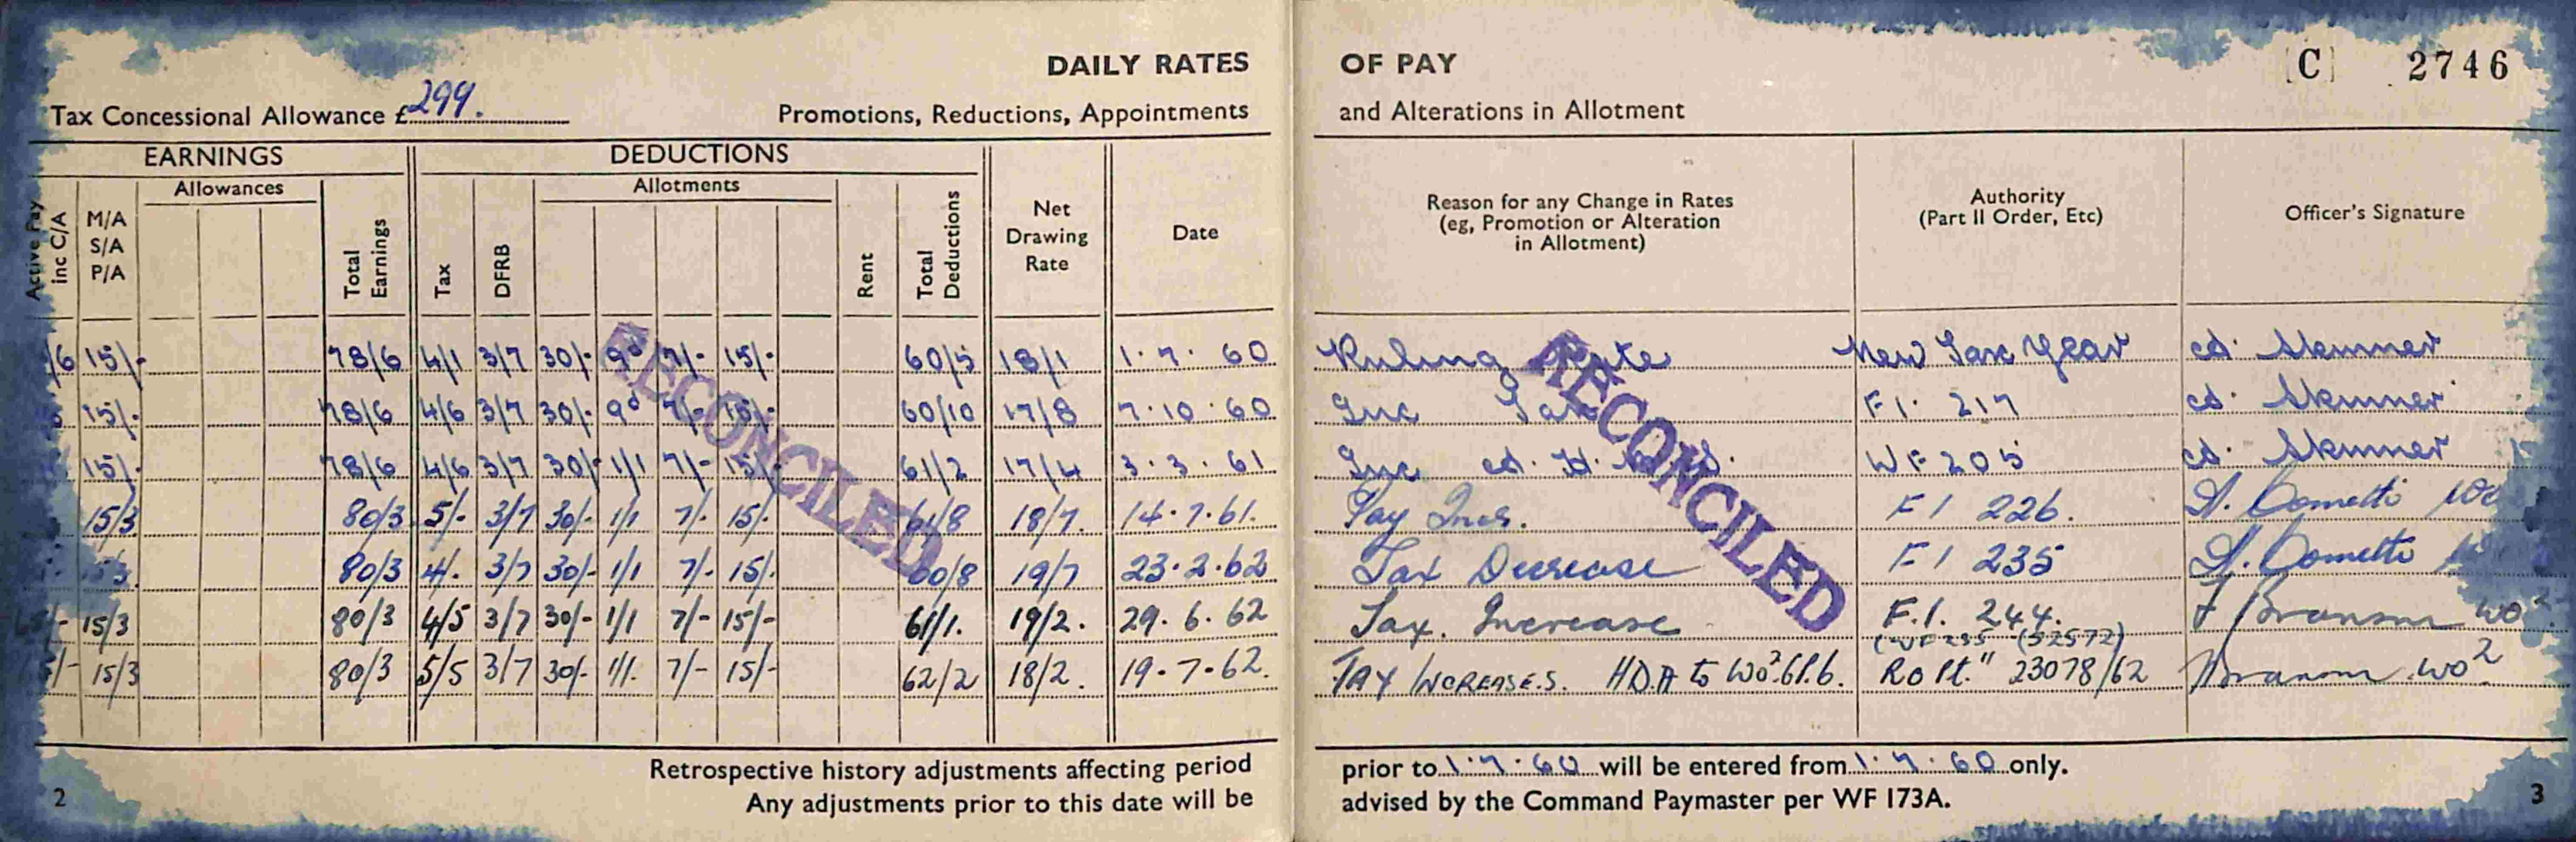 DAILY RATES OF PAY [C] 2746
Tax Concessional Allowance £299. Promotions, Reductions, Appointments and Alterations in Allotment
EARNINGS DEDUCTIONS
Allowances Allotments
Active Pay inc C/A M/A S/A P/A Total Earnings Tax DFRB Rent Total Deductions Net Drawing Rate Date Reason for any Change in Rates (eg, Promotion or Alteration in Allotment) Authority (Part II Order, Etc) Officer's Signature
/6 15/- 78/6 4/1 3/7 30/- 9d 7/- 15/- 60/5 18/1 1.7.60 Ruling Rate New Tax Year Skinner
15/- 78/6 4/6 3/7 30/- 9d 7/- 15/- 60/10 17/8 7.10.60 Inc Tax F1. 217 Skinner
15/- 78/6 4/6 3/7 30/- 1/1 7/- 15/- 61/2 17/4 3.3.61 Inc WF 205 Skinner
15/3 80/3 5/- 3/7 30/- 1/1 7/- 15/- 61/8 18/7 14.7.61. Pay Incs. F1 226. Cometti
15/3 80/3 4/- 3/7 30/- 1/1 7/- 15/- 60/8 19/7 23.2.62 Tax Decrease F1 235 Cometti
15/3 80/3 4/5 3/7 30/- 1/1 7/- 15/- 61/1. 19/2. 29.6.62 Tax. Increase F.1. 244. Branson WO2
(WF 235 (52572)
15/3 80/3 5/5 3/7 30/- 1/1. 7/- 15/- 62/2 18/2. 19.7.62. TAX INCREASES. HDA to WO2 Gp.6. Ro Pt. " 23078/62 Branson WO2
RECONCILED
RECONCILED
Retrospective history adjustments affecting period prior to 1.7.60 will be entered from 1.7.60 only.
Any adjustments prior to this date will be advised by the Command Paymaster per WF 173A.
2 3